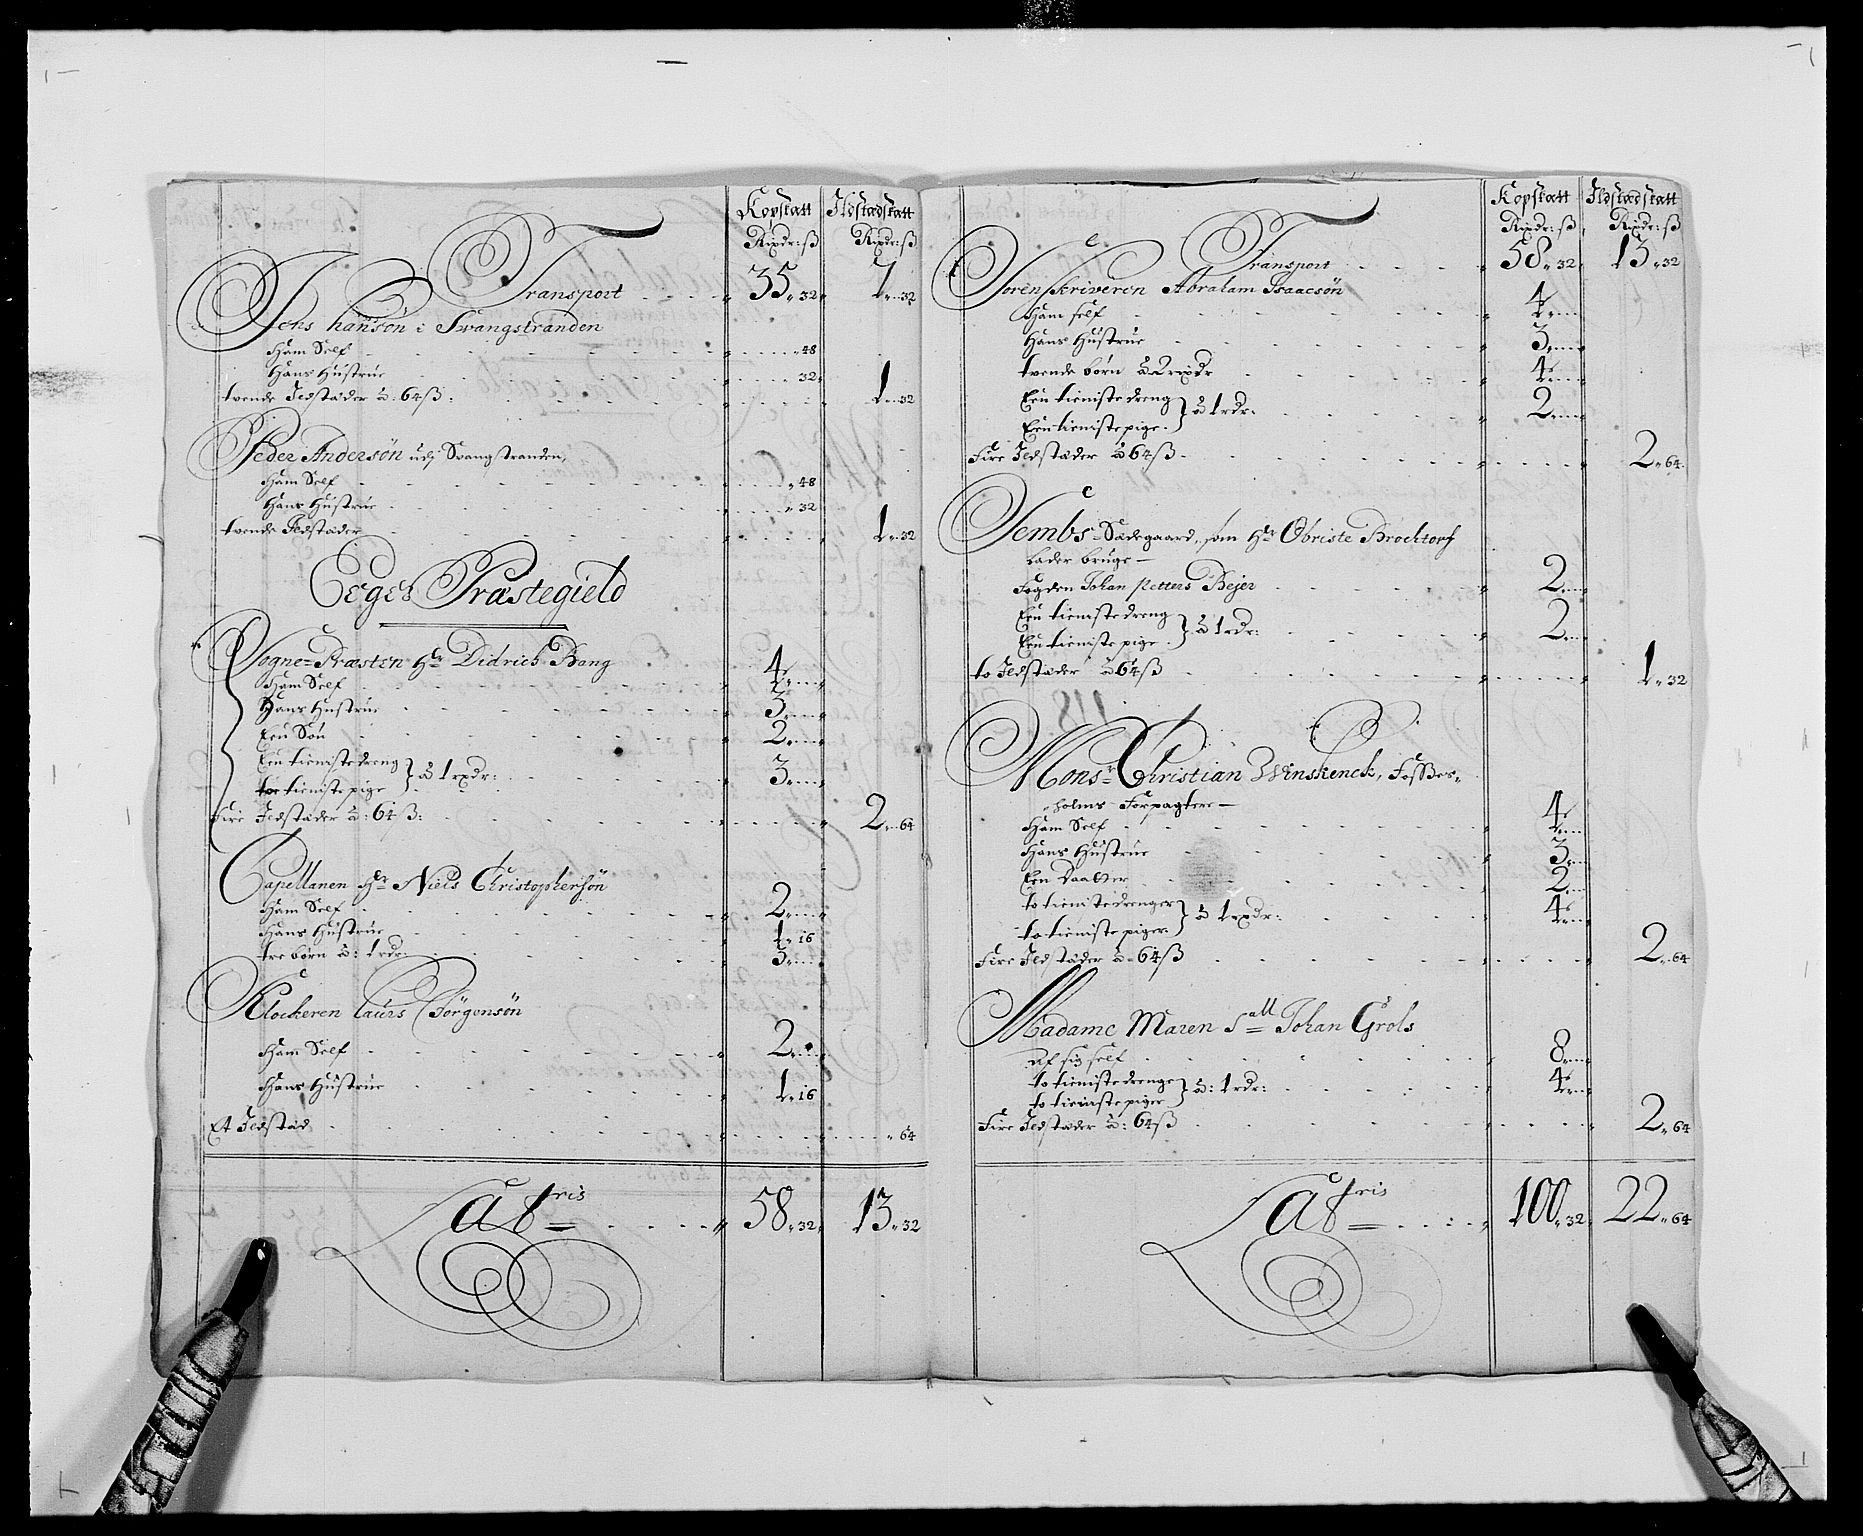 Kopskatt Ildstædskatt
Rixdr: ß Rixdr: ß
Transport 35„32 7„32
Jens hansøn i Svangstranden
Ham Self „48
Hans Hustrue „32
tvende Ildstæder â: 64ß: 1„32
Peder Andersøn udj Svangstranden,
Ham Self „48
Hans Hustrue „32
tvende Ildstæder 1„32
Eeger Præstegield
Sogne-Præsten Hr Didrich Bang
Ham Self 4„
Hans Hustrue 3„
Een Søn 2„
Een tieniste dreng
toe tieniste pige } â 1 rxdr: 3„
Fire Ildstæder â: 64ß: 2„64
Capellanen Hr Niels Christophersøn
Ham Self 2„
Hans Hustrue 1„16
tre børn â: 1 rdr: 3„
Klockeren Laurs Jörgensøn
Ham Self 2„
Hans Hustrue 1„16
Et Ildstæd „64
Latris 58„32 13„32
Kopskatt Ildstædskatt
Rixdr: ß Rixdr: ß
Transport 58„32 13„32
Sorenskriveren Abraham Isaacsøn
Ham self 4„
Hans Hustrue 3„
tvende børn â 2 rixdr 4„
Een tieniste dreng
Een tieniste pige } â 1 rdr: 2„
Fire Ildstæder â 64ß 2„64
Sembs-Sædegaard, som Hr Obriste Brochtorf
Lader bruge—
Fogden Johan Petters Bejer 2„
Een tieniste dreng
Een tieniste pige } â 1 rdr: 2„
to Ildstæder â 64ß 1„32
Monsr Christian Winskenck, Fosses„
„holms Forpagtere—
Ham Self 4„
Hans Hustrue 3„
Een Daatter 2„
to tieniste drenger
to tieniste piger } â 1 rxdr: 4„
Fire Ildstæder â 64ß 2„64
Madame Maren Sall Johan Grols
Af sig self 8„
to tieniste drenge
to tieniste piger } â: 1 rdr: 4„
Fire Ildstæder â: 64ß 2„64
Latris 100„32 22„64